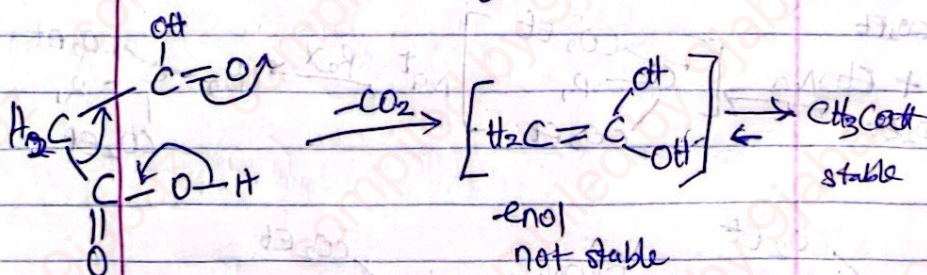 OH
C=O
H2C
C-O-H
O
-CO2
OH
[H2C=C
OH]
CH3COOH
stable
enol
not stable